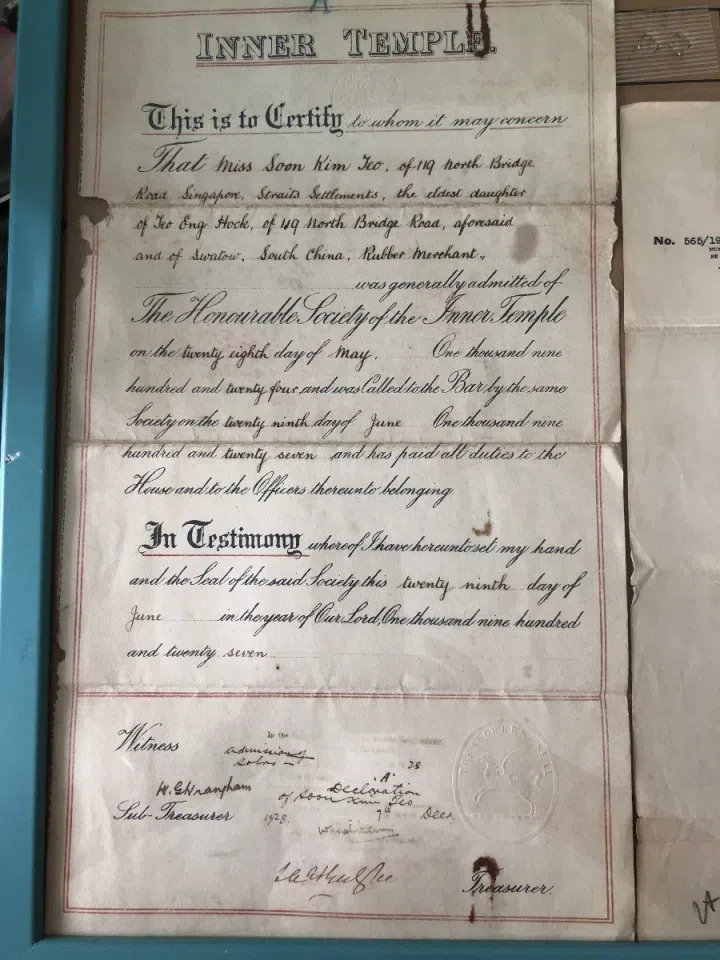 INNER TEMPLE.
This is to Certify to whom it may concern
That Miss Soon Kim Teo, of 119 North Bridge
Road Singapore, Straits Settlements, the eldest daughter
of Teo Eng Hock, of 119 North Bridge Road, aforesaid
and of Swatow, South China, Rubber Merchant.,
was generally admitted of
The Honourable Society of the Inner Temple
on the twenty eighth day of May. One thousand nine
hundred and twenty four, and was Called to the Bar by the same
Society on the twenty ninth day of June One thousand nine
hundred and twenty seven and has paid all duties to the
House and to the Officers thereunto belonging
In Testimony whereof I have hereunto set my hand
and the Seal of the said Society this twenty ninth day of
June in the year of Our Lord, One thousand nine hundred
and twenty seven
Witness
admission of
Solrs
"A" 28
H. G. Wrangham
Declaration
of Soon Kim Teo
Sub-Treasurer
1928.
7th Decr.
Treasurer.
No. 565/19